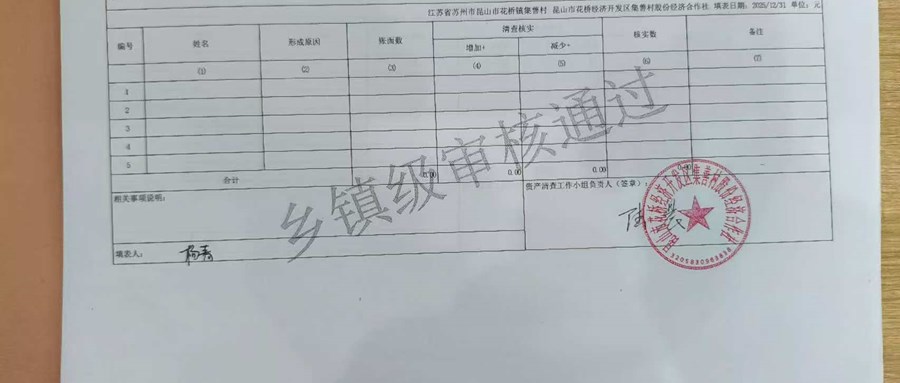 江苏省苏州市昆山市花桥镇集善村 昆山市花桥经济开发区集善村股份经济合作社 填表日期：2025/12/31 单位：元
编号 姓名 形成原因 账面数 清查核实 核实数 备注
增加+ 减少-
(1) (2) (3) (4) (5) (6) (7)
1
2
3
4
5
合计 0.00 0.00 0.00 0.00
乡镇级审核通过
相关事项说明：
资产清查工作小组负责人（签章）：
昆山市花桥经济开发区集善村股份经济合作社
填表人：